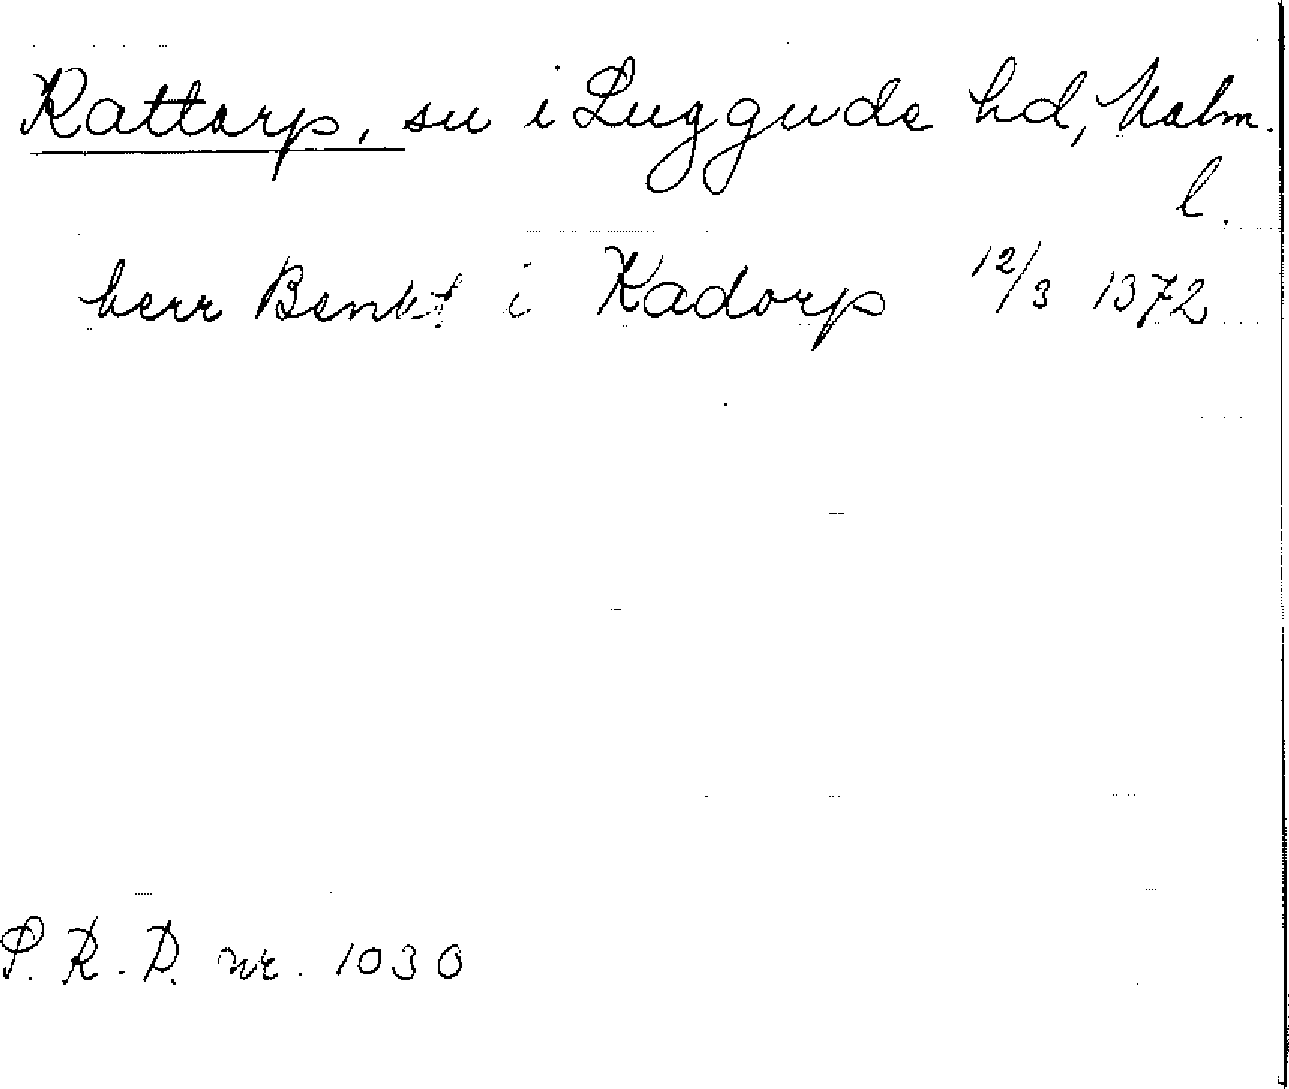 Rattarp, su i Luggude hd, Malm.
l.
herr Benkt i Kadorp 12/3 1372
S. R. P. nr. 1030